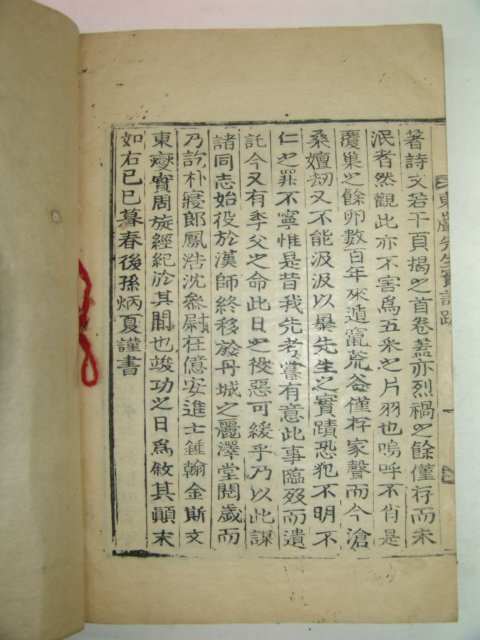 東巖先生實記跋
著詩文若干頁揭之首卷蓋亦烈禍之餘僅存而未
泯者然觀此亦不害爲五采之片羽也嗚呼不肖是
覆巢之餘卵數百年來遁竄荒谷僅存家聲而今滄
桑嬗刼又不能汲汲以暴先生之實蹟恐犯不明不
仁之罪不寧惟是昔我先考嘗有意此事臨歿而遺
託今又有季父之命此日之役惡可緩乎乃以此謀
諸同志始役於漢師終移於丹城之麗澤堂閱歲而
乃訖朴寢郎鳳浩沈叅尉億安進士鍾翰金斯文
東燮實周旋經紀於其間也竣功之日爲敘其顚末
如右己巳暮春後孫炳夏謹書